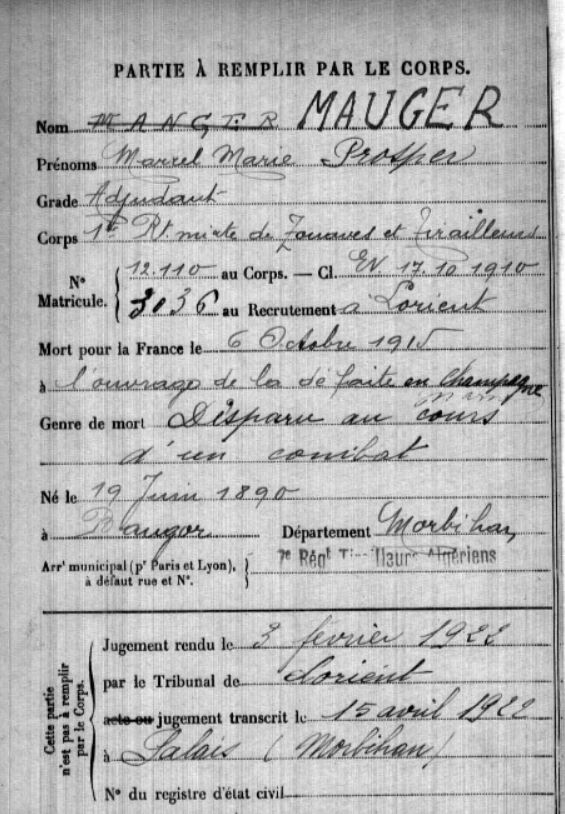 PARTIE À REMPLIR PAR LE CORPS.
Nom MANGER MAUGER
Prénoms Marcel Marie Prosper
Grade Adjudant
Corps 1er Rt mixte de Zouaves et Tirailleurs
N° Matricule. 12.110 au Corps. — Cl. EV 17.10 1910
3036 au Recrutement a Lorient
Mort pour la France le 6 Octobre 1915
à l'ouvrage de la défaite en Champagne
Genre de mort Disparu au cours
d'un combat
Né le 19 Juin 1890
à Bangor Département Morbihan
7e Régt Tirailleurs Algériens
Arrt municipal (pr Paris et Lyon),
à défaut rue et N°.
Cette partie
n'est pas à remplir
par le Corps.
Jugement rendu le 3 février 1922
par le Tribunal de Lorient
acte ou jugement transcrit le 15 avril 1922
à Palais (Morbihan)
N° du registre d'état civil